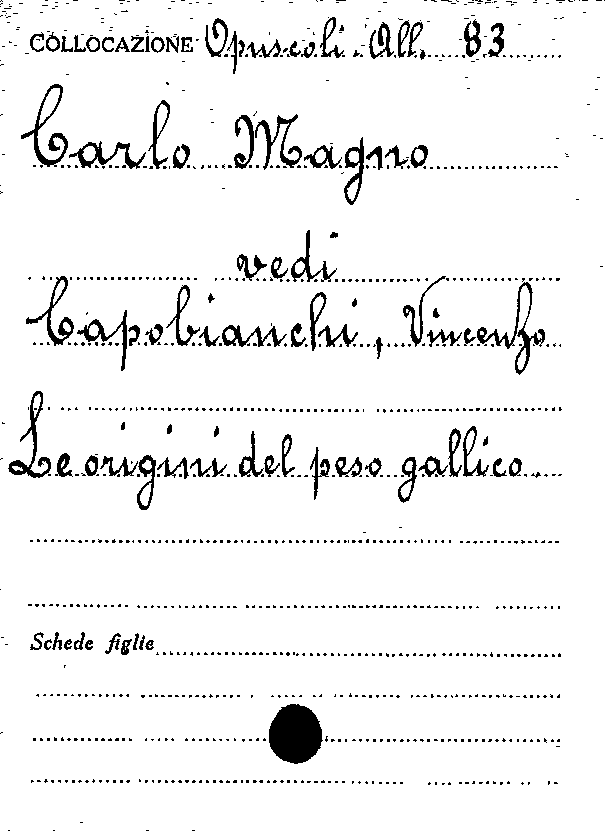 COLLOCAZIONE Opuscoli. All. 83
Carlo Magno
vedi
Capobianchi, Vincenzo
Le origini del peso gallico.
Schede figlie